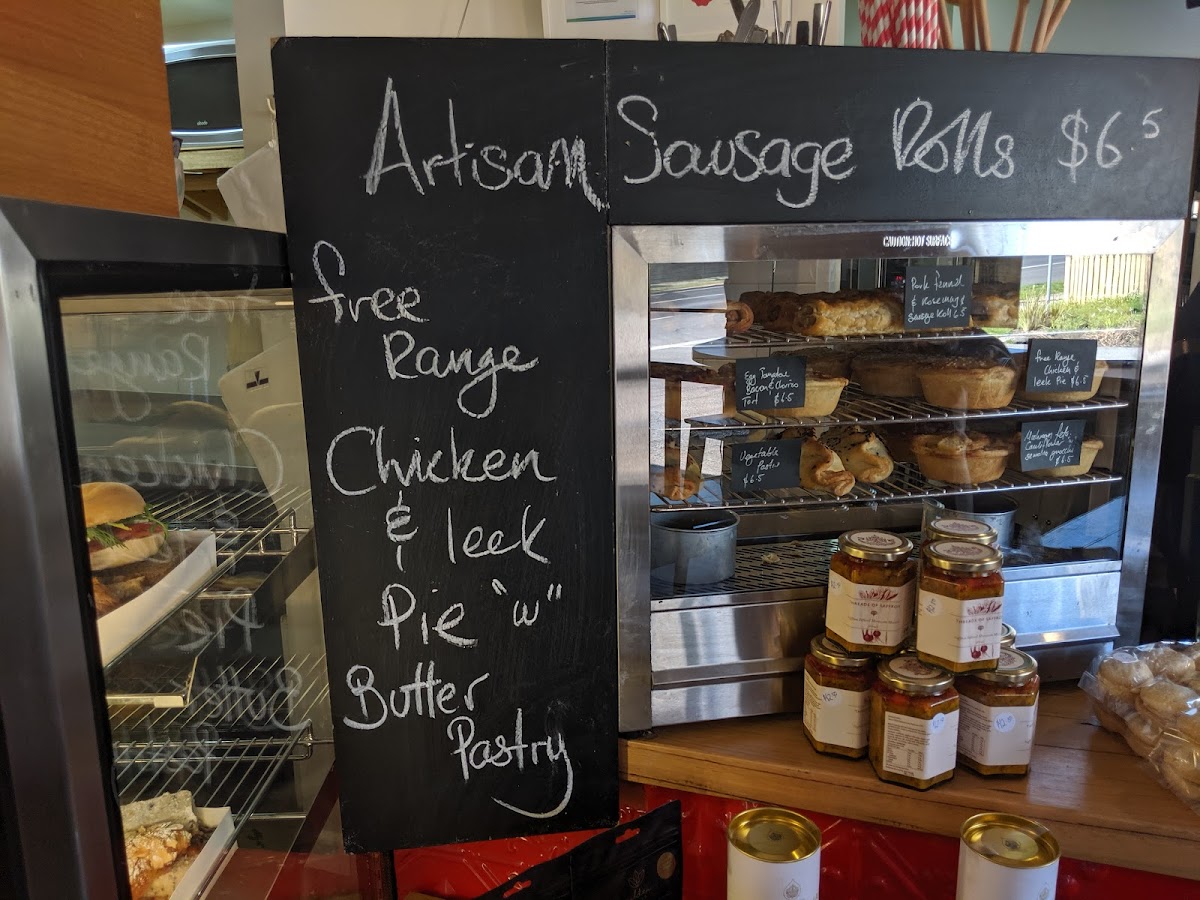 Artisan Sausage Rolls $6.5
free
Range
Chicken
& leek
Pie "w"
Butter
Pastry
CAUTION: HOT SURFACE
Pork fennel
& Rosemary
Sausage Roll 6.5
Egg
Bacon &
Tart $6.5
free Range
Chicken &
leek Pie $6.5
Vegetable
$6.5
$6.5
THREADS OF
THREADS OF